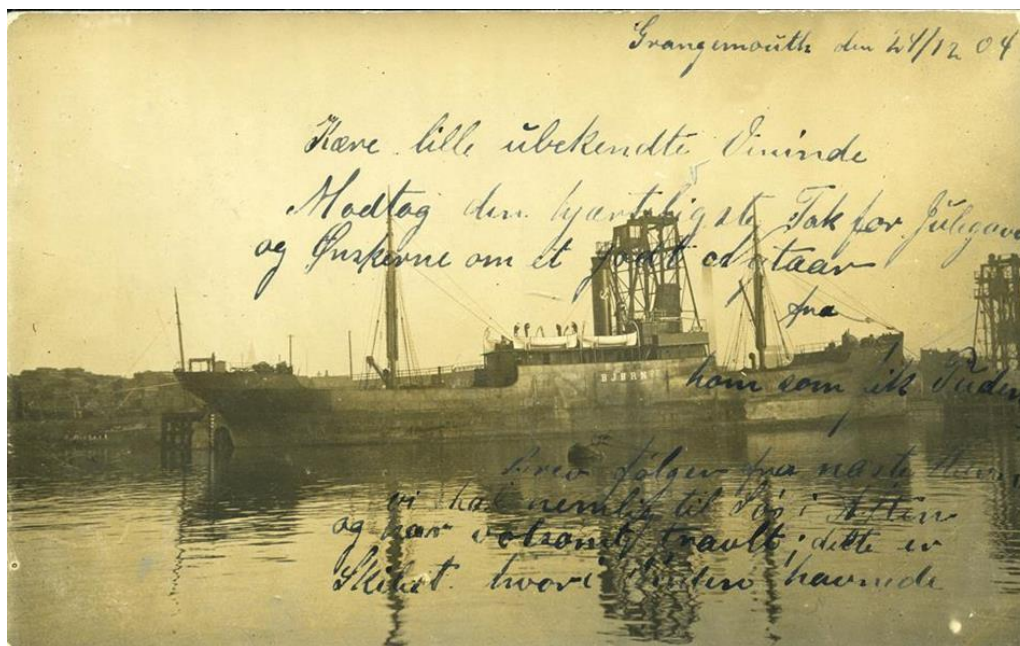 Grangemouth den 24/12 04
Kære lille ubekendte Veninde
Modtag den hjærteligste Tak for Julegave
og Ønskerne om et godt nytaar
fra
BJØRN
ham som fik Puden
Brev følger fra næste Havn,
vi skal nemlig til Søs i Aften
og har volsomt travlt; dette er
Skibet hvori Puden havnede